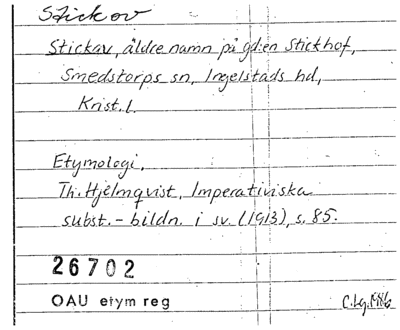 Stickov
Stickav, äldre namn på gd:en Stickhof,
Smedstorps sn, Ingelstads hd,
Krist. l.
Etymologi.
Th. Hjelmqvist, Imperativiska
subst.-bildn. i sv. (1913), s. 85.
26702
OAU etym reg
C.Lg.